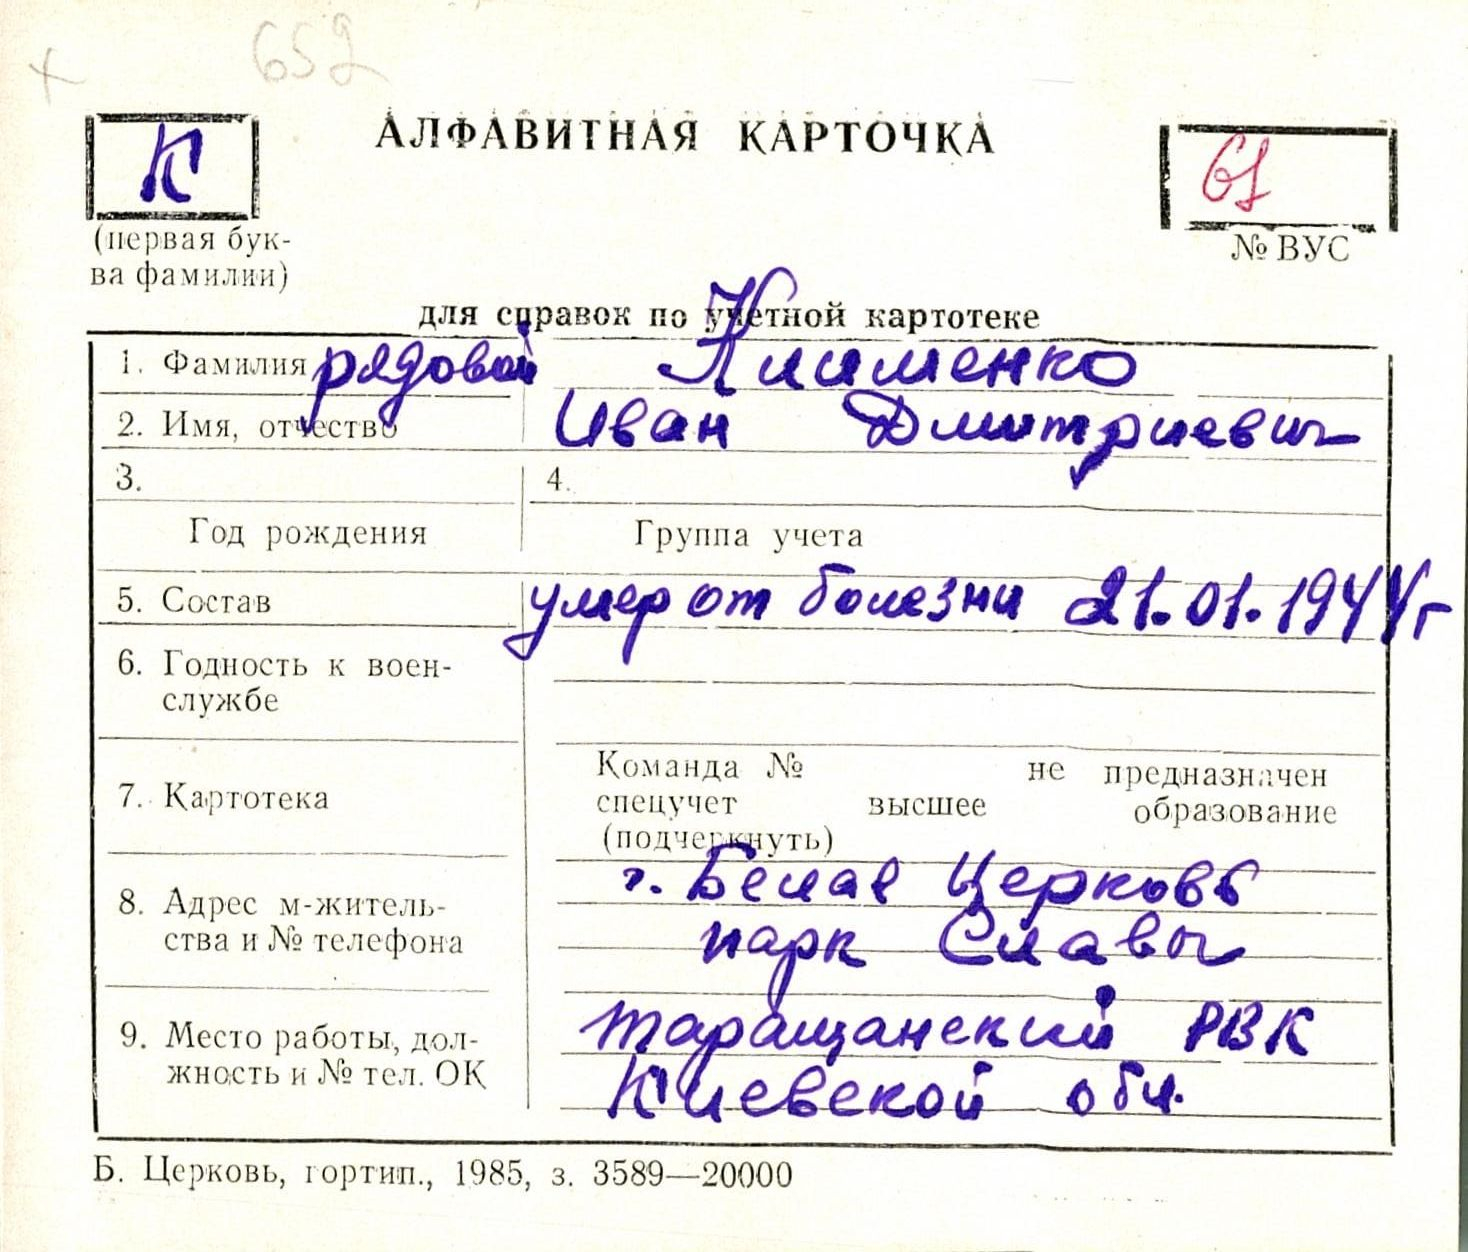 652
АЛФАВИТНАЯ КАРТОЧКА
К
61
(первая бук-
ва фамилии)
№ ВУС
для справок по учетной картотеке
1. Фамилия рядовой Клименко
2. Имя, отчество Иван Дмитриевич
3. 4.
Год рождения Группа учета
5. Состав умер от болезни 21.01.1944г
6. Годность к воен-
службе
7. Картотека
Команда № не предназначен
спецучет высшее образование
(подчеркнуть)
8. Адрес м-житель-
ства и № телефона
г. Белая Церковь
парк Славы
9. Место работы, дол-
жность и № тел. ОК
Таращанский РВК
Киевской обл.
Б. Церковь, гортип., 1985, з. 3589—20000